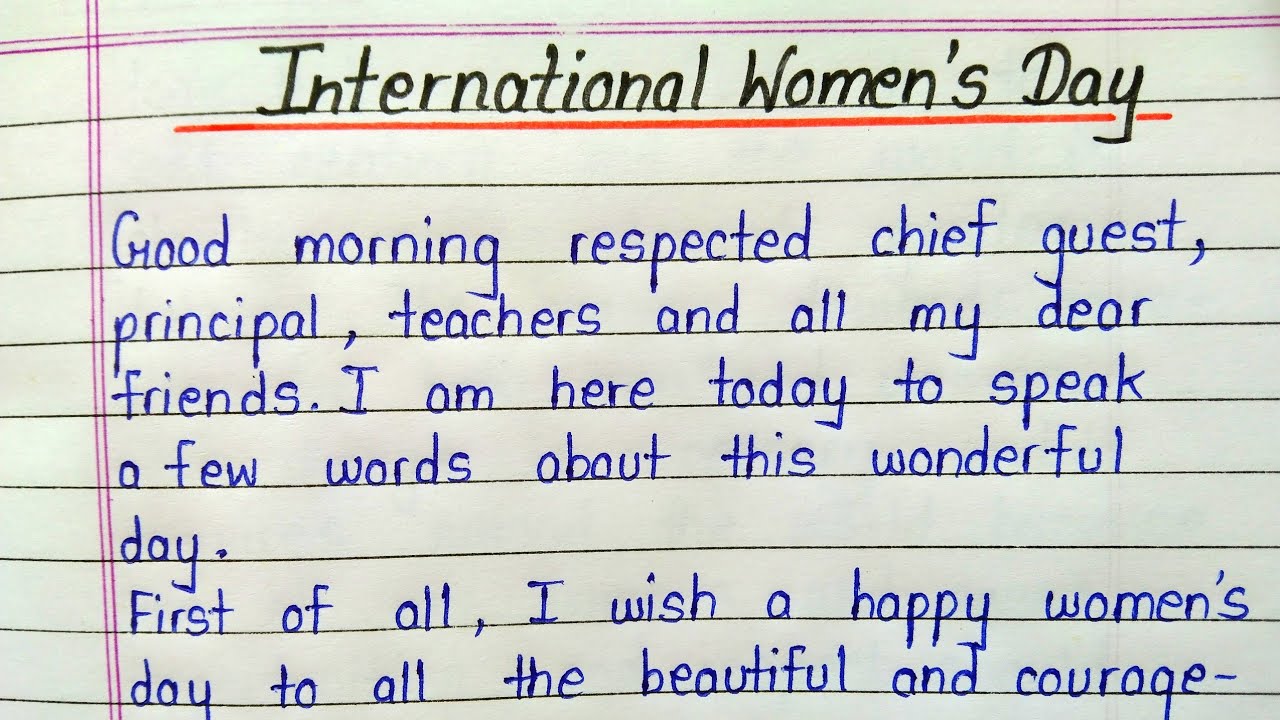 International Women's Day
Good morning respected chief guest,
principal, teachers and all my dear
friends. I am here today to speak
a few words about this wonderful
day.
First of all, I wish a happy women's
day to all the beautiful and courage-